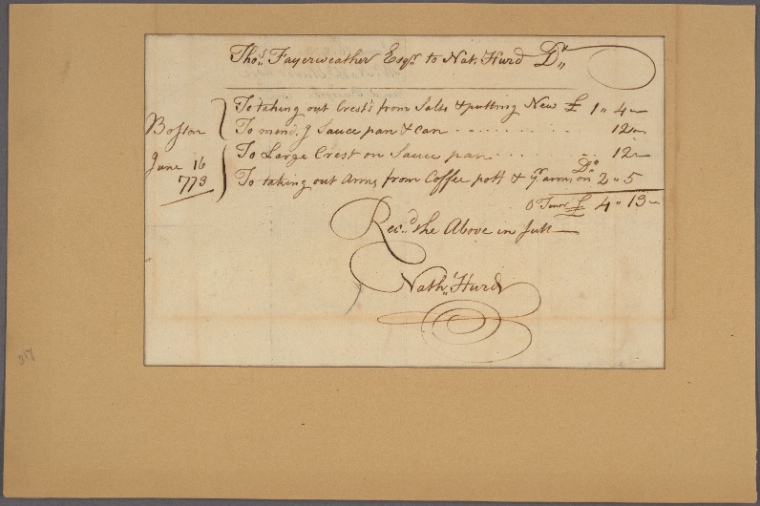 Thos. Fayerweather Esqr. to Nat. Hurd Dr.
To taking out Crests from Salts & putting New £ 1 " 4 "
To mendg Sauce pan & can . . . . . . . . . 12 "
To Large Crest on Sauce pan . . . . . . 12 "
To taking out Arms from Coffee pott & Do. on 2 " 5
Boston
June 16
1773
O Tenor £ 4 " 13 "
Recd. the Above in full
Nathl. Hurd
317